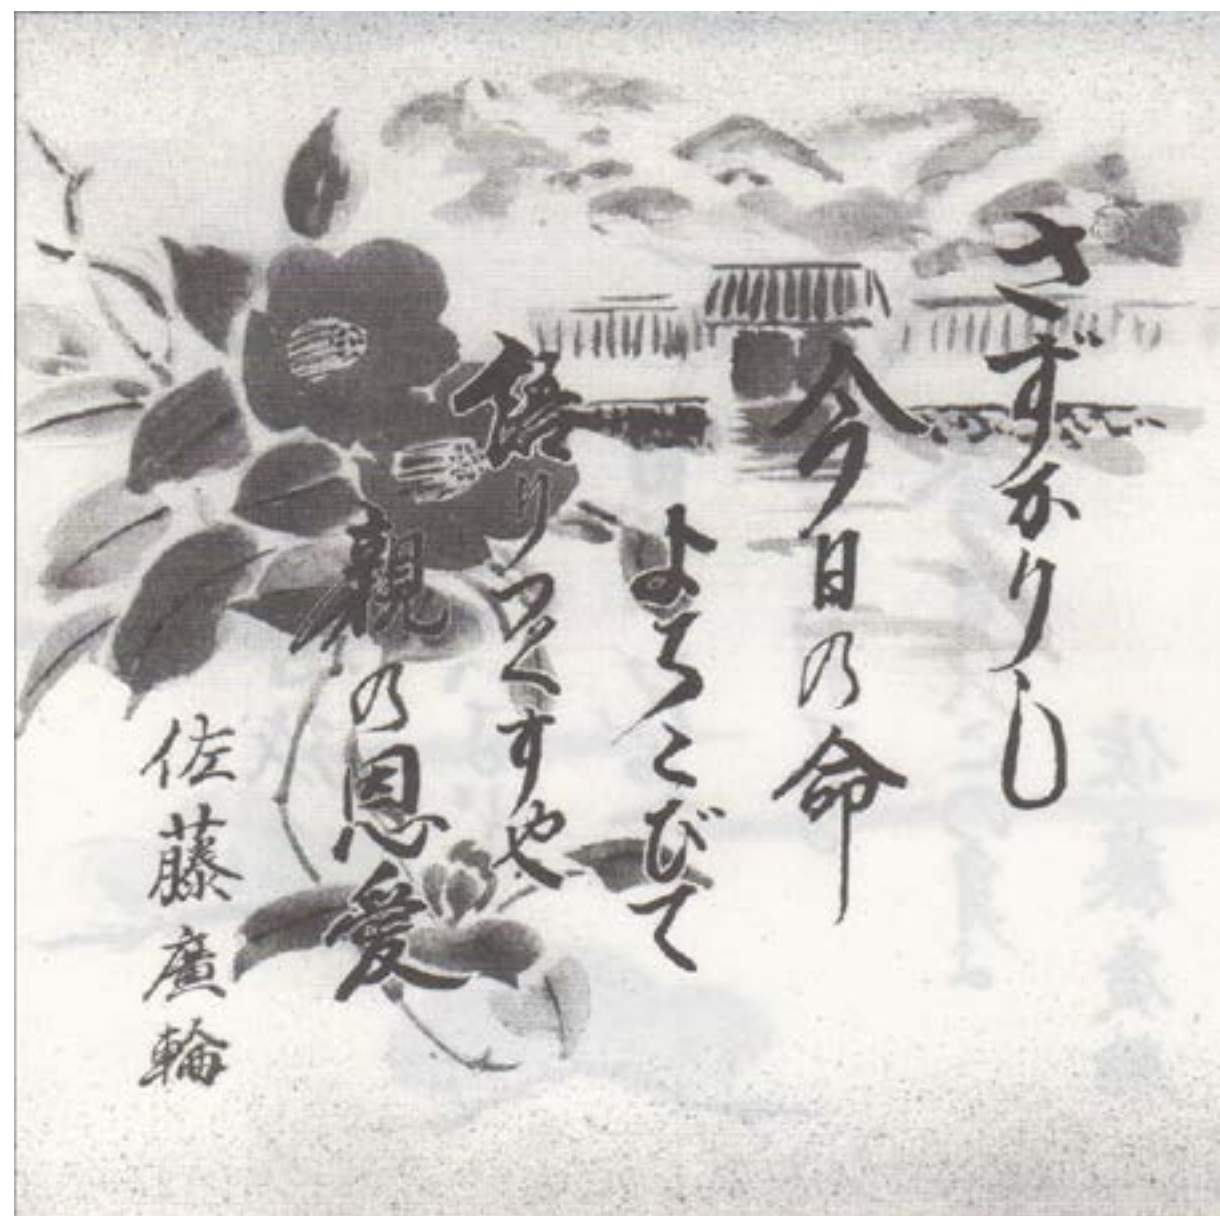 さずかりし
今日の命
よろこびて
語りつくすや
親の恩愛
佐藤廣輪